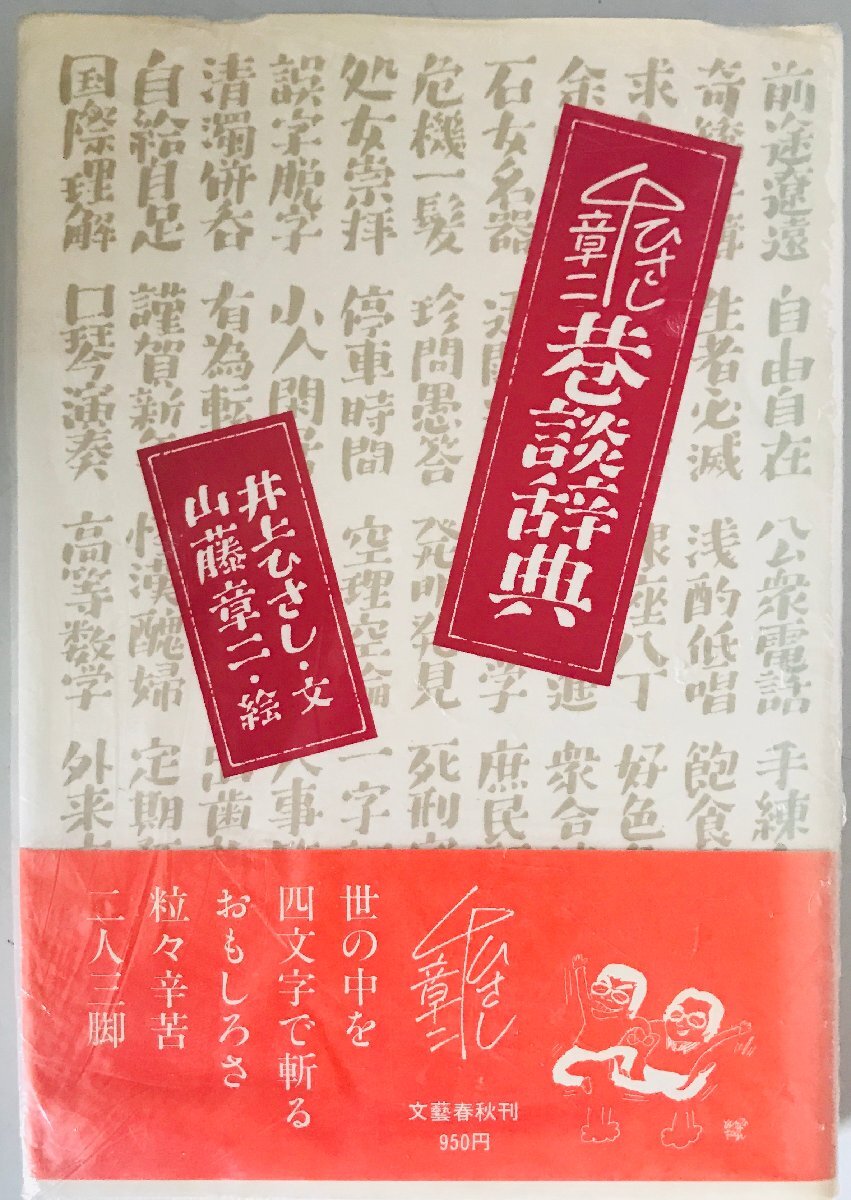 ひさし
章二
巷談辞典
井上ひさし・文
山藤章二・絵
前途遼遠 自由自在 公衆電話 手練
生者必滅 浅酌低唱 飽食
求 座八丁 好色
余 衆合
石女名器 学 庶民
危機一髪 珍問愚答 発明発見 死刑
処女崇拝 停車時間 空理空論 一字
誤字脱字 小人閑 人事
清濁併呑 有為転
自給自足 謹賀新 漢醜婦 定期
国際理解 口琴演奏 高等数学 外来
世の中を
四文字で斬る
おもしろさ
粒々辛苦
二人三脚
ひさし
章二
文藝春秋刊
950円